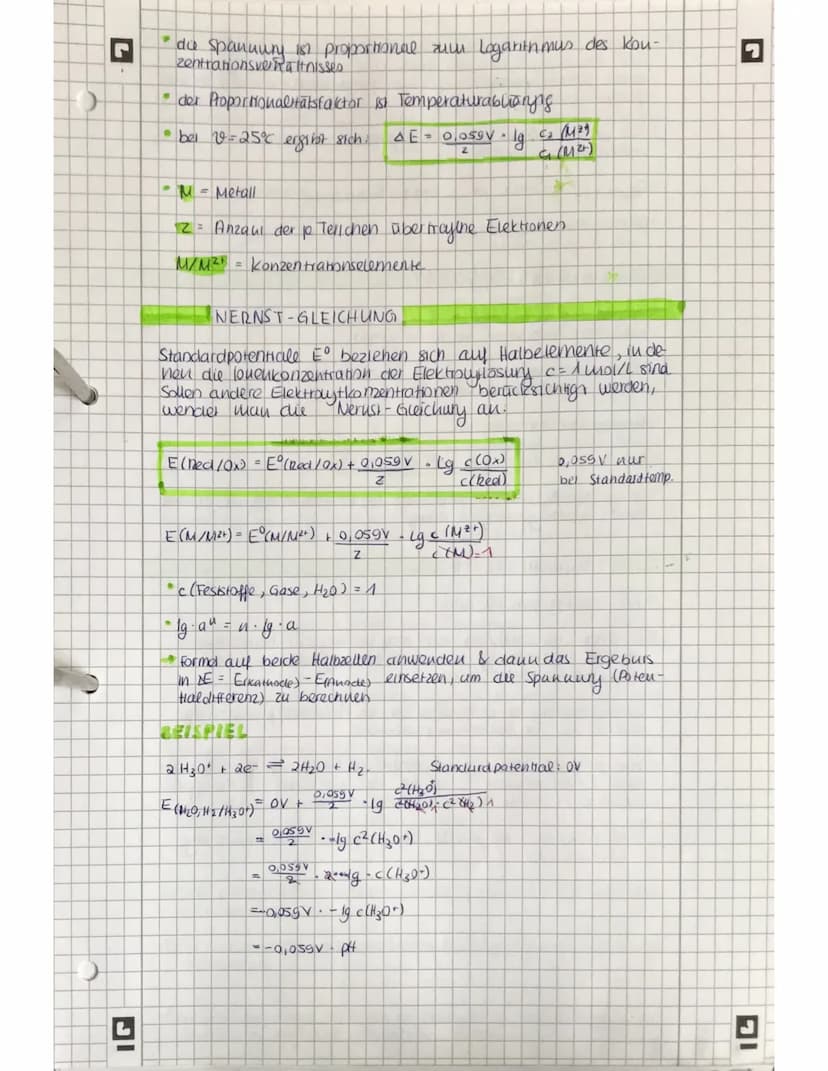 • die Spannung ist proportional zum Logarithmus des Kon-
zentrationsverhältnisses
• der Proportionalitätsfaktor ist Temperaturabhängig
• bei ϑ=25°C ergibt sich: ΔE = 0,059V/z · lg c₂(Mᶻ⁺)/c₁(Mᶻ⁺)
• M = Metall
z = Anzahl der p Teilchen übertragene Elektronen
M/Mᶻ⁺ = Konzentrationselemente
NERNST-GLEICHUNG
Standardpotentiale E⁰ beziehen sich auf Halbelemente, in de-
nen die Ionenkonzentration der Elektrolytlösung c=1mol/L sind
Sollen andere Elektrolytkonzentrationen berücksichtigt werden,
wendet man die Nernst-Gleichung an.
E(Red/Ox) = E⁰(Red/Ox) + 0,059V/z · lg c(Ox)/c(Red)
0,059V nur
bei Standardtemp.
E(M/Mᶻ⁺) = E⁰(M/Mᶻ⁺) + 0,059V/z · lg c(Mᶻ⁺)/c(M)=1
• c(Feststoffe, Gase, H₂O) = 1
• lg·aⁿ = n·lg·a
→ Formel auf beide Halbzellen anwenden & dann das Ergebnis
in ΔE = E(Kathode) - E(Anode) einsetzen, um die Spannung (Poten-
tialdifferenz) zu berechnen
BEISPIEL
2 H₃O⁺ + 2e⁻ ⇌ 2H₂O + H₂ Standardpotential: 0V
E(H₂O, H₂/H₃O⁺) = 0V + 0,059V/2 · lg c²(H₃O⁺)/c²(H₂O)·c²(H₂) 1
= 0,059V/2 · -lg c²(H₃O⁺)
= 0,059V/2 · 2·-lg · c(H₃O⁺)
=-0,059V · -lg c(H₃O⁺)
= -0,059V · pH